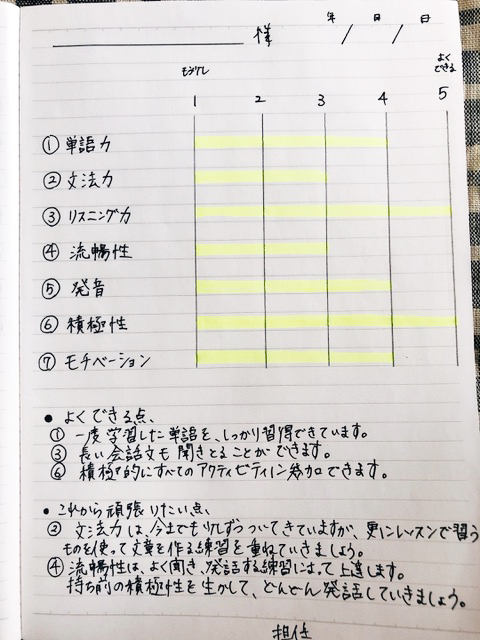 年 月 日
様 / /
もう少し よくできる
1 2 3 4 5
① 単語力
② 文法力
③ リスニング力
④ 流暢性
⑤ 発音
⑥ 積極性
⑦ モチベーション
● よくできる点、
① 一度学習した単語を、しっかり習得できています。
③ 長い会話文も聞きとることができます。
⑥ 積極的にすべてのアクティビティに参加できます。
● これから頑張りたい点、
② 文法力は今までも少しずつついてきていますが、更にレッスンで習う
ものを使って文章を作る練習を重ねていきましょう。
④ 流暢性は、よく聞き、発話する練習によって上達します。
持ち前の積極性を生かして、どんどん発話していきましょう。
担任